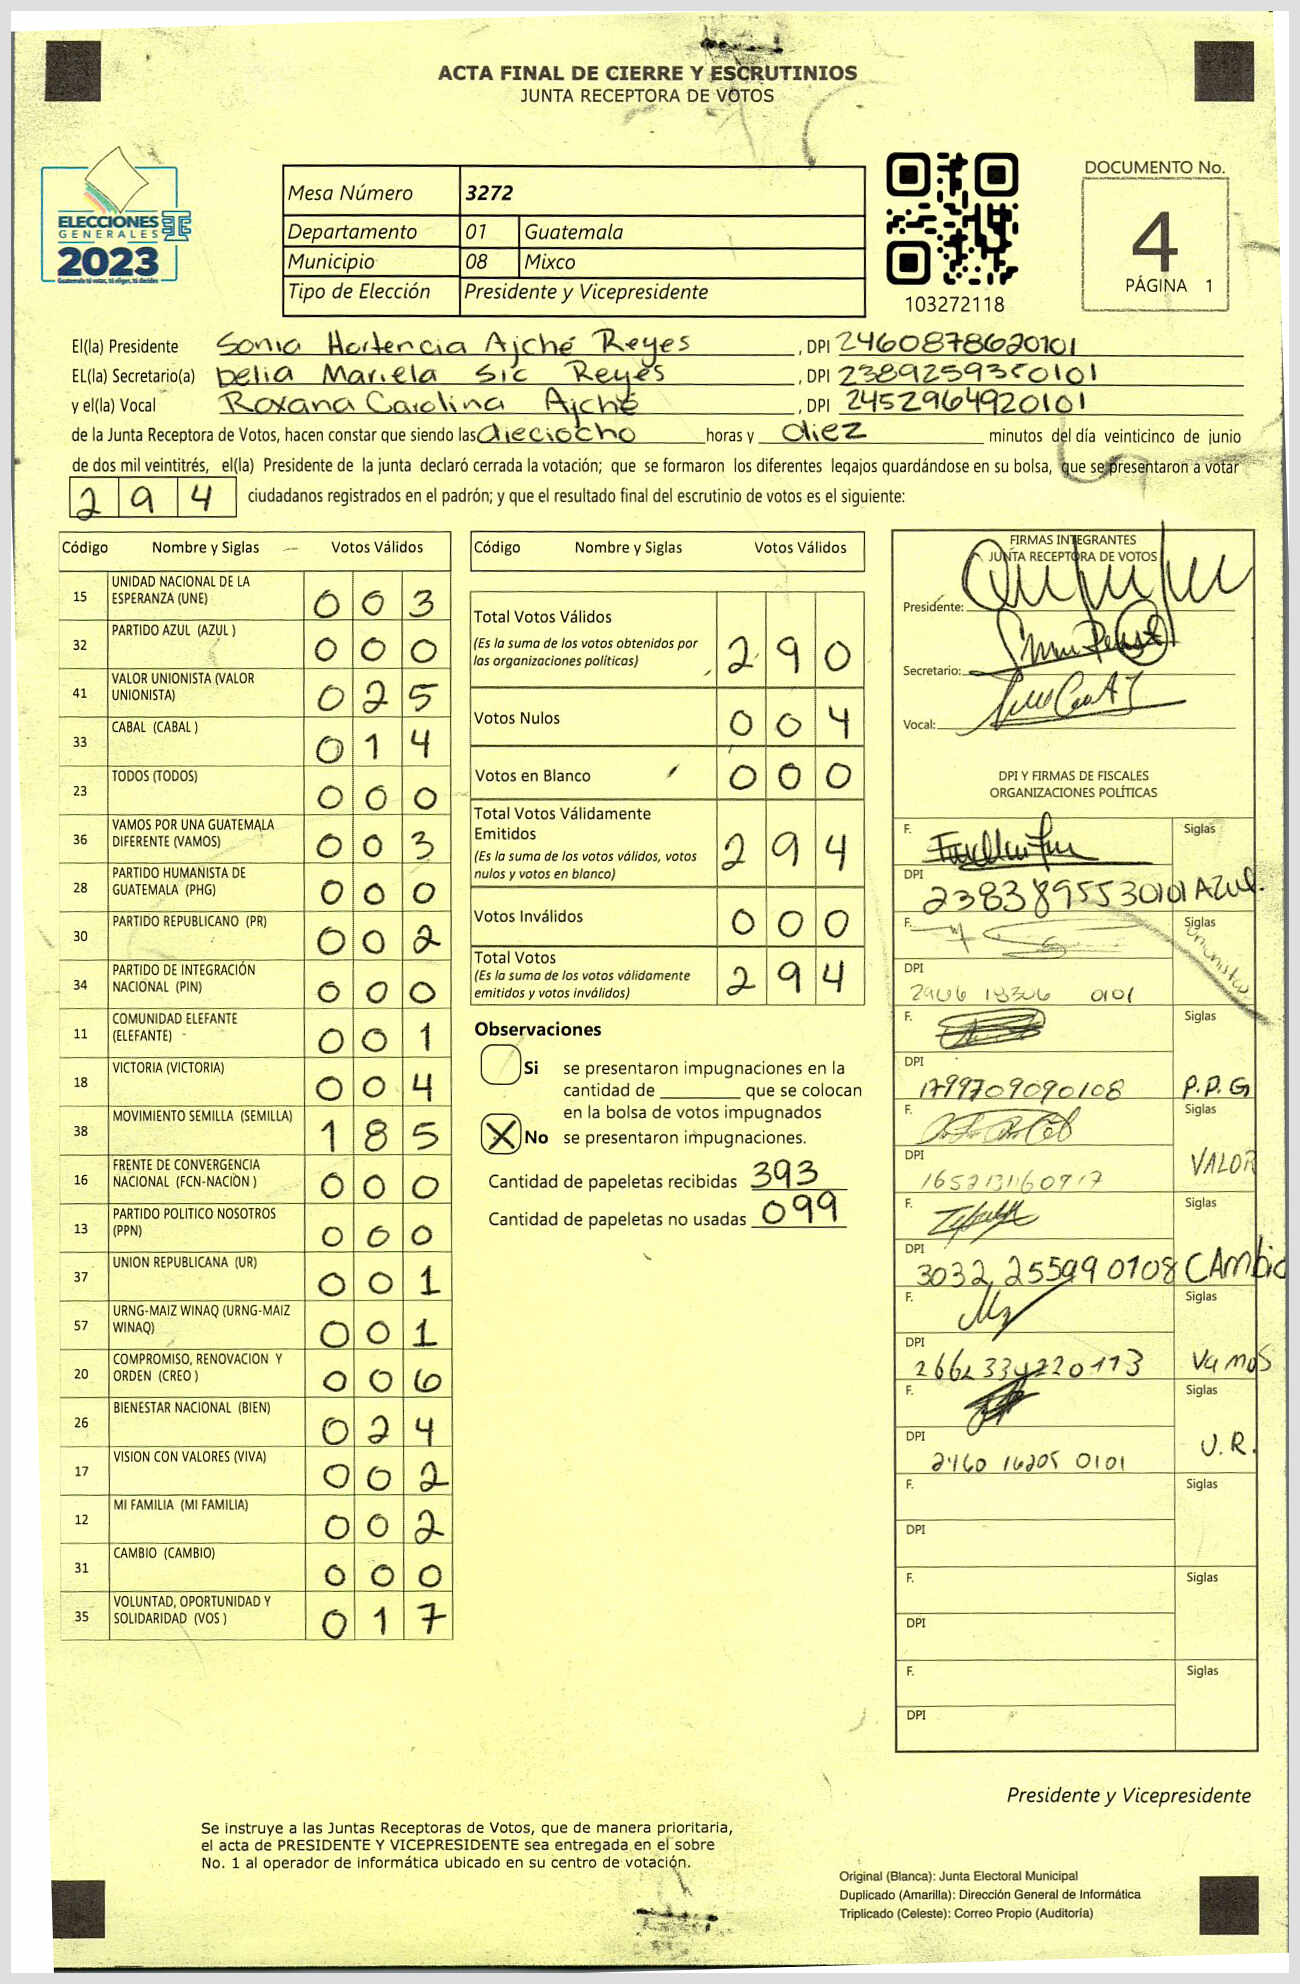 ACTA FINAL DE CIERRE Y ESCRUTINIOS
JUNTA RECEPTORA DE VOTOS
ELECCIONES
GENERALES
2023
Guatemala tú votas, tú eliges, tú decides
Mesa Número 3272
Departamento 01 Guatemala
Municipio 08 Mixco
Tipo de Elección Presidente y Vicepresidente
103272118
DOCUMENTO No.
4
PÁGINA 1
El(la) Presidente Sonia Hortencia Ajché Reyes, DPI 2460878620101
EL(la) Secretario(a) Delia Mariela Sic Reyes, DPI 2389259350101
y el(la) Vocal Roxana Carolina Ajché, DPI 2452964920101
de la Junta Receptora de Votos, hacen constar que siendo las dieciocho horas y diez minutos del día veinticinco de junio
de dos mil veintitrés, el(la) Presidente de la junta declaró cerrada la votación; que se formaron los diferentes legajos guardándose en su bolsa, que se presentaron a votar
294 ciudadanos registrados en el padrón; y que el resultado final del escrutinio de votos es el siguiente:
Código Nombre y Siglas Votos Válidos
15 UNIDAD NACIONAL DE LA ESPERANZA (UNE) 003
32 PARTIDO AZUL (AZUL ) 000
41 VALOR UNIONISTA (VALOR UNIONISTA) 025
33 CABAL (CABAL ) 014
23 TODOS (TODOS) 000
36 VAMOS POR UNA GUATEMALA DIFERENTE (VAMOS) 003
28 PARTIDO HUMANISTA DE GUATEMALA (PHG) 000
30 PARTIDO REPUBLICANO (PR) 002
34 PARTIDO DE INTEGRACIÓN NACIONAL (PIN) 000
11 COMUNIDAD ELEFANTE (ELEFANTE) 001
18 VICTORIA (VICTORIA) 004
38 MOVIMIENTO SEMILLA (SEMILLA) 185
16 FRENTE DE CONVERGENCIA NACIONAL (FCN-NACION ) 000
13 PARTIDO POLITICO NOSOTROS (PPN) 000
37 UNION REPUBLICANA (UR) 001
57 URNG-MAIZ WINAQ (URNG-MAIZ WINAQ) 001
20 COMPROMISO, RENOVACION Y ORDEN (CREO ) 006
26 BIENESTAR NACIONAL (BIEN) 024
17 VISION CON VALORES (VIVA) 002
12 MI FAMILIA (MI FAMILIA) 002
31 CAMBIO (CAMBIO) 000
35 VOLUNTAD, OPORTUNIDAD Y SOLIDARIDAD (VOS ) 017
Código Nombre y Siglas Votos Válidos
Total Votos Válidos 290
(Es la suma de los votos obtenidos por
las organizaciones políticas)
Votos Nulos 004
Votos en Blanco 000
Total Votos Válidamente
Emitidos 294
(Es la suma de los votos válidos, votos
nulos y votos en blanco)
Votos Inválidos 000
Total Votos 294
(Es la suma de los votos válidamente
emitidos y votos inválidos)
Observaciones
Si se presentaron impugnaciones en la
cantidad de ________ que se colocan
en la bolsa de votos impugnados
X No se presentaron impugnaciones.
Cantidad de papeletas recibidas 393
Cantidad de papeletas no usadas 099
FIRMAS INTEGRANTES
JUNTA RECEPTORA DE VOTOS
Presidente:
Secretario:
Vocal:
DPI Y FIRMAS DE FISCALES
ORGANIZACIONES POLÍTICAS
F. Siglas
DPI 2383895530101 AZUL.
F. Siglas
DPI 0101
F. Siglas
DPI 1799709090108 P.P.G
F. Siglas
DPI VALOR
F. Siglas
DPI 3032 25599 0108 CAmbio
F. Siglas
DPI VamoS
F. Siglas
DPI 2460 16205 0101 U.R.
F. Siglas
DPI
F. Siglas
DPI
F. Siglas
DPI
Presidente y Vicepresidente
Se instruye a las Juntas Receptoras de Votos, que de manera prioritaria,
el acta de PRESIDENTE Y VICEPRESIDENTE sea entregada en el sobre
No. 1 al operador de informática ubicado en su centro de votación.
Original (Blanca): Junta Electoral Municipal
Duplicado (Amarilla): Dirección General de Informática
Triplicado (Celeste): Correo Propio (Auditoría)